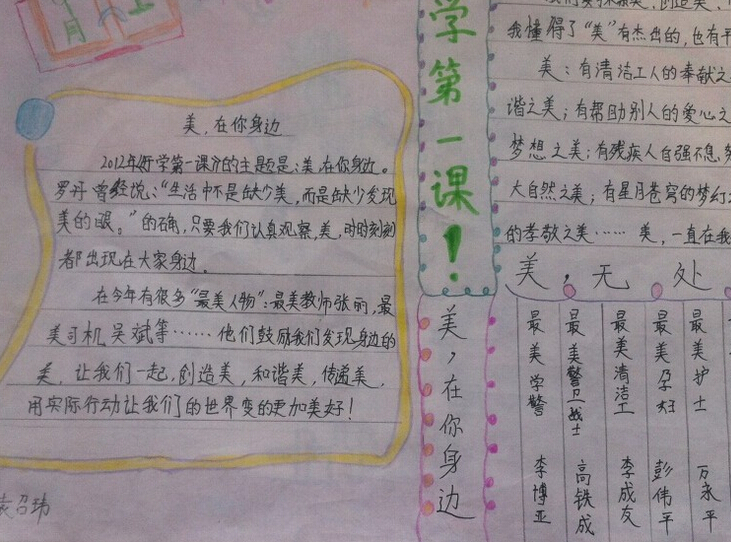 月
美,在你身边
2012年《开学第一课》的主题是:美,在你身边。
罗丹曾经说:“生活中不是缺少美,而是缺少发现
美的眼。”的确,只要我们认真观察,美,时时刻刻
都出现在大家身边。
在今年有很多“最美人物”:最美教师张丽,最
美司机吴斌等……他们鼓励我们发现身边的
美,让我们一起,创造美,和谐美,传递美,
用实际行动让我们的世界变的更加美好!
召玮
学第一课!
美,在你身边
我懂得了“美”有杰出的,也有平
美:有清洁工人的奉献之
谐之美;有帮助别人的爱心之
梦想之美;有残疾人自强不息、
大自然之美;有星月苍穹的梦幻
的孝敬之美……美,一直在我
美,无处
最美学警 李博亚
最美警卫战士 高铁成
最美清洁工 李成友
最美孕妇 彭伟平
最美护士 万永平